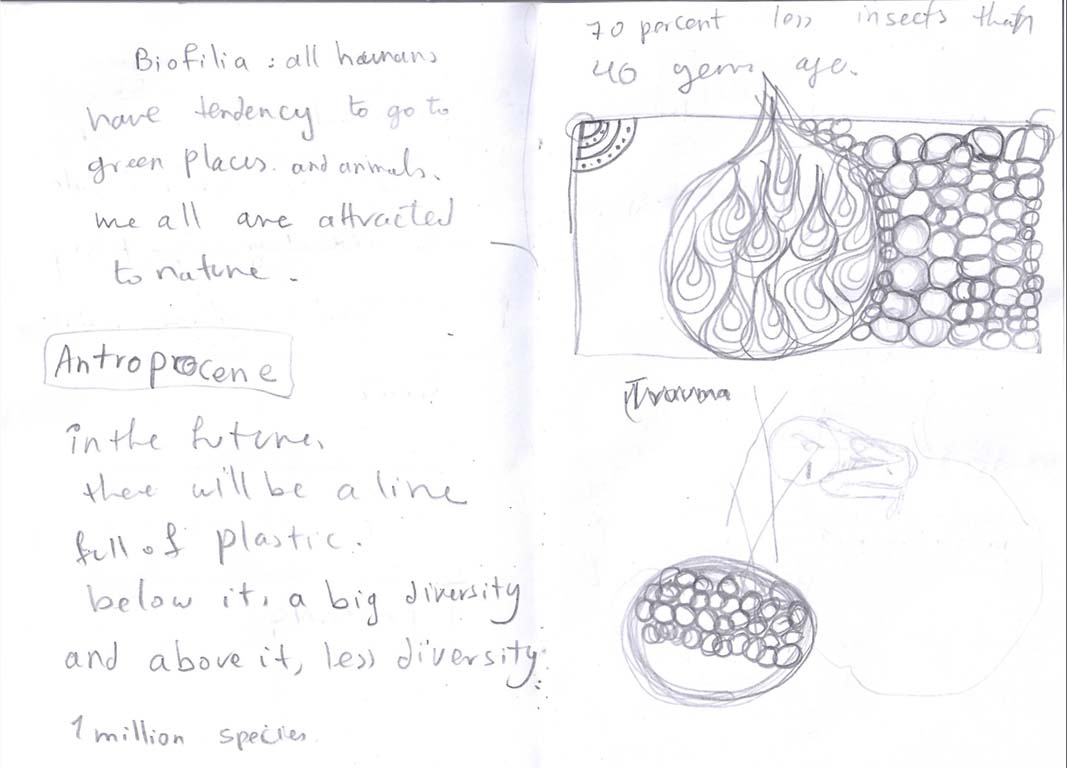 Biofilia : all humans
have tendency to go to
green places. and animals.
we all are attracted
to nature.
Antroprocene
in the future,
there will be a line
full of plastic.
below it, a big diversity
and above it, less diversity.
1 million species.
70 percent less insects than
40 years ago.
Trauma